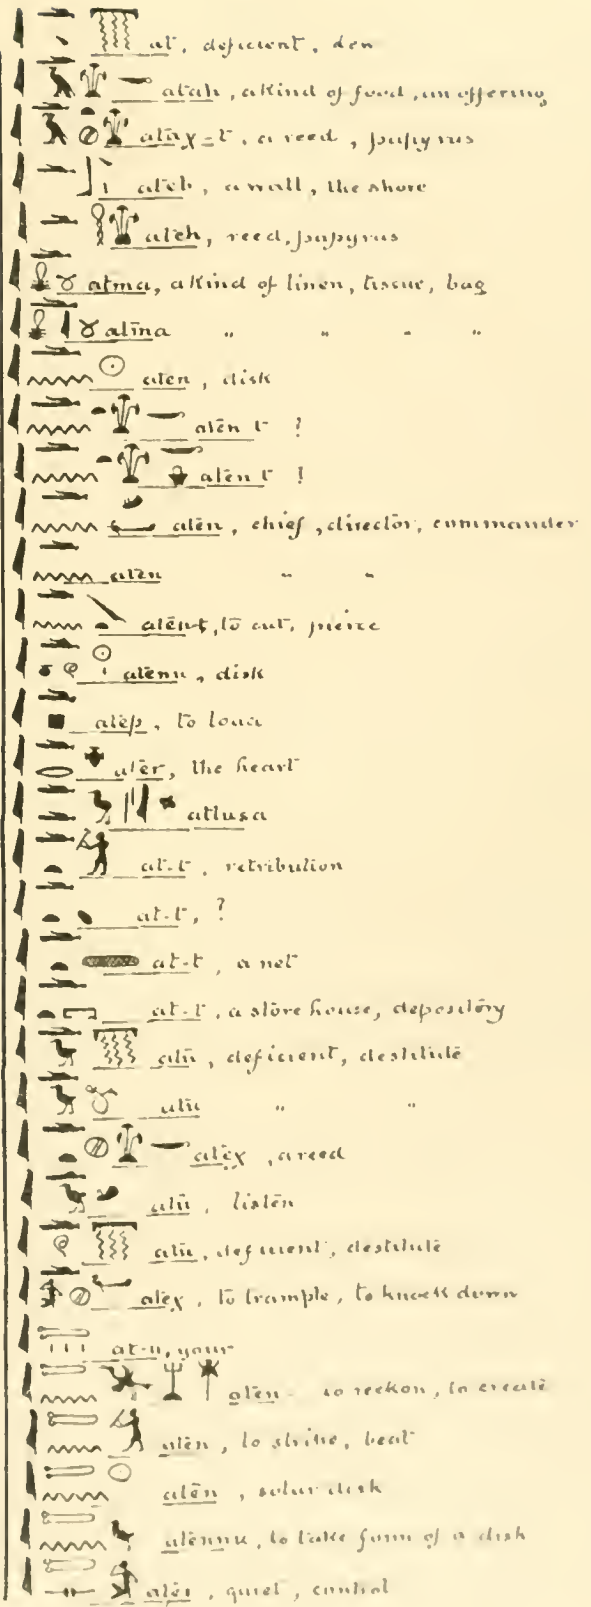 at, deficient, den
atah, a kind of food, an offering
atax-t, a reed, papyrus
ateb, a wall, the shore
ateh, reed, papyrus
atma, a kind of linen, tissue, bag
atma " " " "
aten, disk
aten t ?
aten t !
aten, chief, director, commander
aten " "
aten-t, to cut, pierce
atenu, disk
atep, to
ater, the heart
atlusa
at-t, retribution
at-t, ?
at-t, a net
at-t, a store house, depository
atu, deficient, destitute
atu " "
atex, a reed
atu, listen
atu, deficient, destitute
atex, to trample, to knock down
at-u, your
aten to reckon, to create
aten, to strike, beat
aten, solar disk
atennu, to take form of a disk
quiet, control